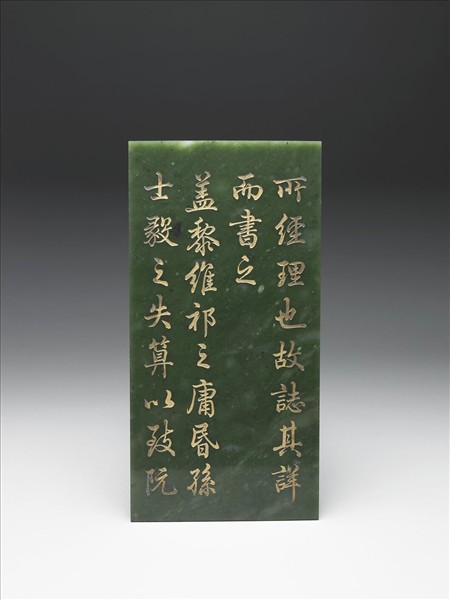 所經理也故誌其詳
而書之
盖黎維祁之庸昏孫
士毅之失算以致阮